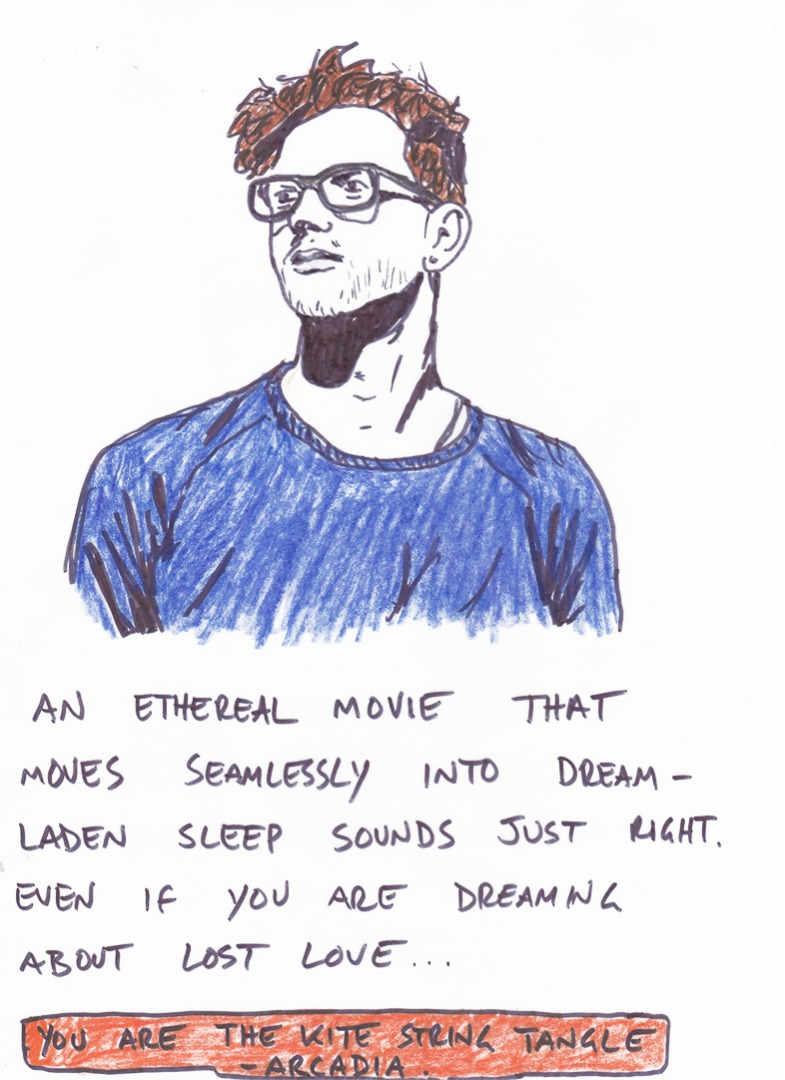 AN ETHEREAL MOVIE THAT
MOVES SEAMLESSLY INTO DREAM-
LADEN SLEEP SOUNDS JUST RIGHT.
EVEN IF YOU ARE DREAMING
ABOUT LOST LOVE...
YOU ARE THE KITE STRING TANGLE
-ARCADIA.